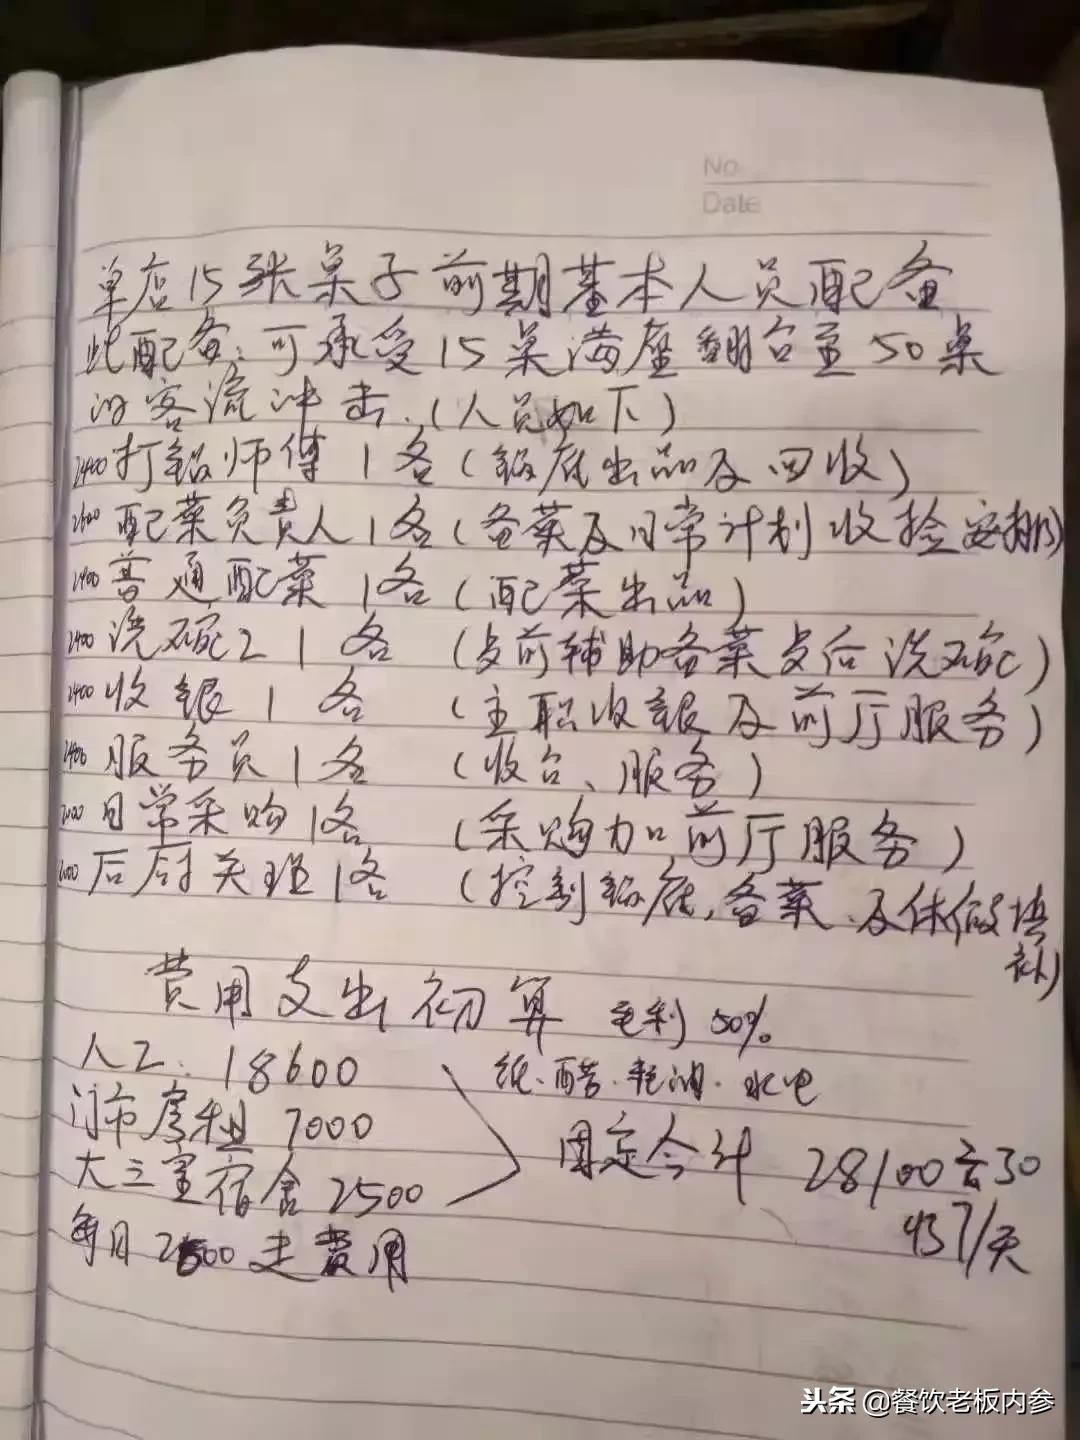 No.
Date
单店15张桌子前期基本人员配备
此配备:可承受15桌满座翻台至50桌
的客流冲击.(人员如下)
2400打锅师傅1名(锅底出品及回收)
2600配菜负责人1名(备菜及日常计划收捡安排)
2400普通配菜1名(配菜出品)
2400洗碗工1名(点前辅助备菜点后洗碗)
2400收银1名(主职收银及前厅服务)
2400服务员1名(收台、服务)
日常采购1名(采购加前厅服务)
后厨关理1名(控制锅底,备菜.及休假填补)
费用支出初算 毛利50%
人工:18600
纸.醋.耗油.水电
门市房租7000
大三室宿舍2500
固定合计 28100 30
937/天
每月 走费用
头条@餐饮老板内参